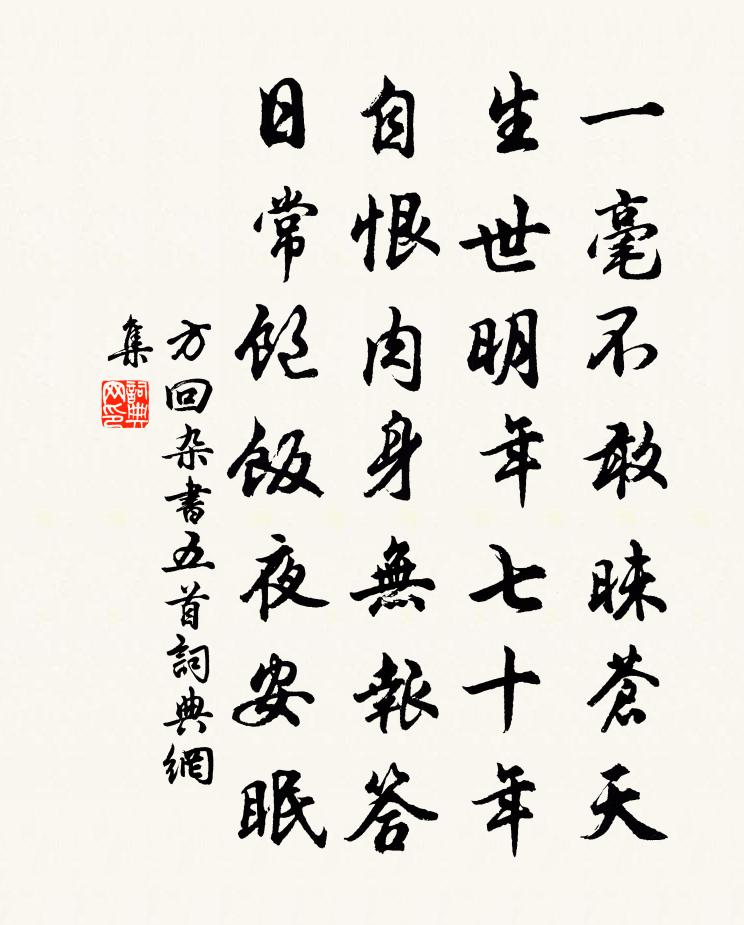 一毫不敢昧蒼天
生世明年七十年
自恨肉身無報答
日常飽飯夜安眠
方回杂書五首詞典網
集
詞典网印